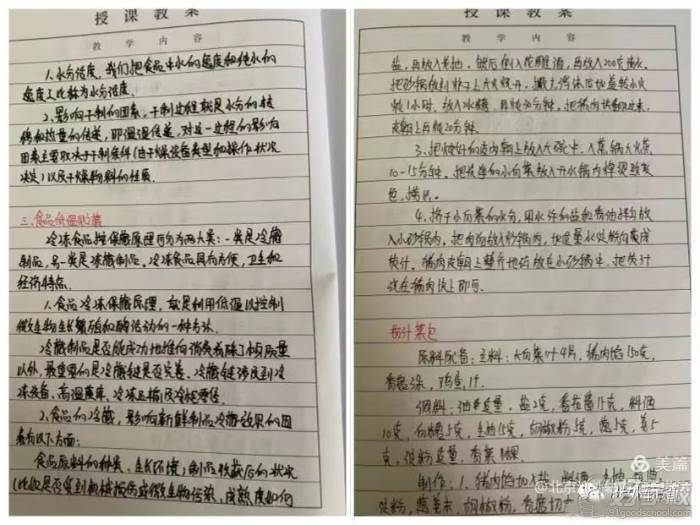 授课教案
教学内容
1.水分活度，我们把食品中水的逸度和纯水的
逸度之比称为水分活度。
2.影响干制的因素，干制过程就是水分的转
移和热量的传递，即温湿传递，对这一过程的影响
因素主要取决于干制条件(由干燥设备类型和操作状况
决定)以及干燥物料的性质。
三.食品低温贮藏
冷冻食品按保藏原理可分为两大类：一类是冷藏
制品，另一类是冻藏制品。冷冻食品具有方便，卫生和
经济特点
1.食品冷冻保藏原理，就是利用低温以控制
微生物生长繁殖和酶活动的一种方法。
冷藏制品是否能成功地维持消费者除了初质量
以外，最重要的是冷藏链是否完善、冷藏链涉及到冷
冻设备，高温货库，冷冻运输及冷柜零售
2.食品的冷藏，影响新鲜制品冷藏效果的因
素有以下方面：
食品原料的种类、生长环境，制品收获后的状况
(比如是否受到机械损伤或微生物污染，成熟度如何
授课教案
教学内容
盐，再放入酱油，然后倒入花雕酒，再放入200克清水，
把砂锅放到炉子上大火烧开，撇去浮沫后改盖转小火
炖1小时，放入冰糖，再炖30分钟，把猪肉块翻过来，
皮朝上再炖20分钟。
3.把炖好的皮肉朝上放入大碗中，入蒸锅大火蒸
10-15分钟。把洗净的小白菜放入开水锅内焯烫至变
色，捞出。
4.挤干小白菜的水分，用少许的盐和香油拌匀放
入小砂锅内，把肉汤放入炒锅内，加适量水淀粉勾芡成
烧汁。猪肉皮朝上整齐地码放在小砂锅中，把烧汁
浇在猪肉块上即可。
原料配备：主料：大白菜叶4片，猪肉馅150克，
香菇3朵，鸡蛋1个
调料：油适量，盐2克，香菇酱15克，料酒
10克，白糖5克，生抽15克，胡椒粉5克，葱5克，姜5
克，淀粉适量，香菜1棵
制作：1.猪肉馅加入盐，料酒，生抽，白糖
淀粉，葱姜末，胡椒粉，香菇切
美篇